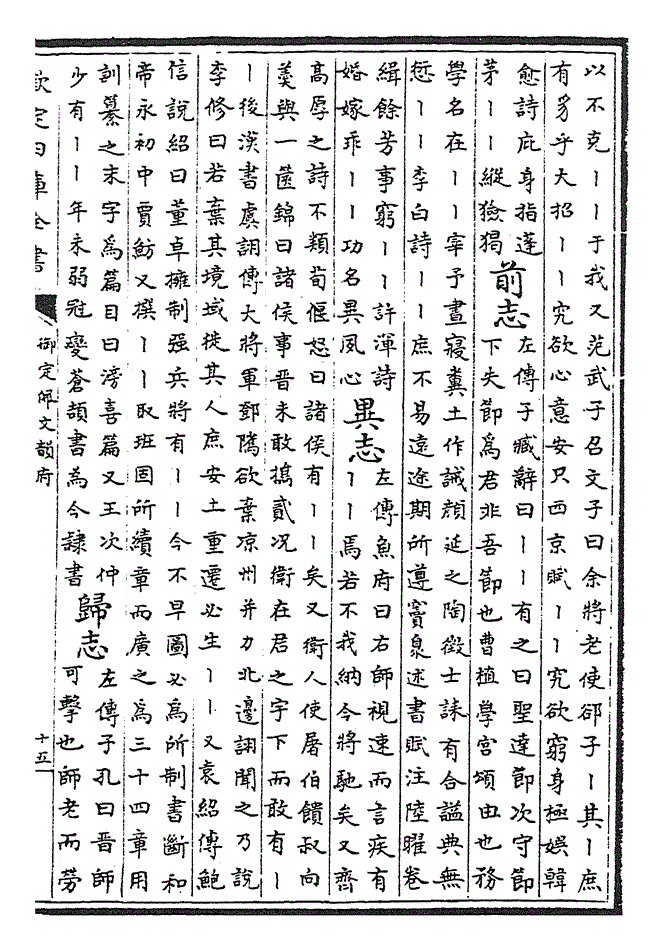 以不克丨丨于我又范武子召文子曰余將老使郤子丨其丨庶
有豸乎大招丨丨究欲心意安只西京賦丨丨究欲窮身極娛韓
愈詩庇身指蓬
茅丨丨縱獫猲
前志
左傳子臧辭曰丨丨有之曰聖達節次守節
下失節爲君非吾節也曹植學宮頌由也務
學名在丨丨宰予晝寢糞土作誡顔延之陶徵士誄有合謚典無
愆丨丨李白詩丨丨庶不易遠途期所遵竇臮述書賦注陸曜卷
緝餘芳事窮丨丨許渾詩
婚嫁乖丨丨功名異夙心
異志
左傳魚府曰右師視速而言疾有
丨丨焉若不我納今將馳矣又齊
高厚之詩不類荀偃怒曰諸侯有丨丨矣又衛人使屠伯饋叔向
羹與一篋錦曰諸侯事晉未敢攜貳况衛在君之宇下而敢有丨
丨後漢書虞詡傳大將軍鄧隲欲棄凉州并力北邊詡聞之乃說
李修曰若棄其境域徙其人庶安土重遷必生丨丨又袁紹傳鮑
信說紹曰董卓擁制强兵將有丨丨今不早圖必爲所制書斷和
帝永初中賈魴又撰丨丨取班固所續章而廣之爲三十四章用
訓纂之末字爲篇目曰滂喜篇又王次仲
少有丨丨年未弱冠變蒼頡書爲今隷書
歸志
左傳子孔曰晉師
可擊也師老而勞
欽定四庫全書
御定佩文韻府
十五